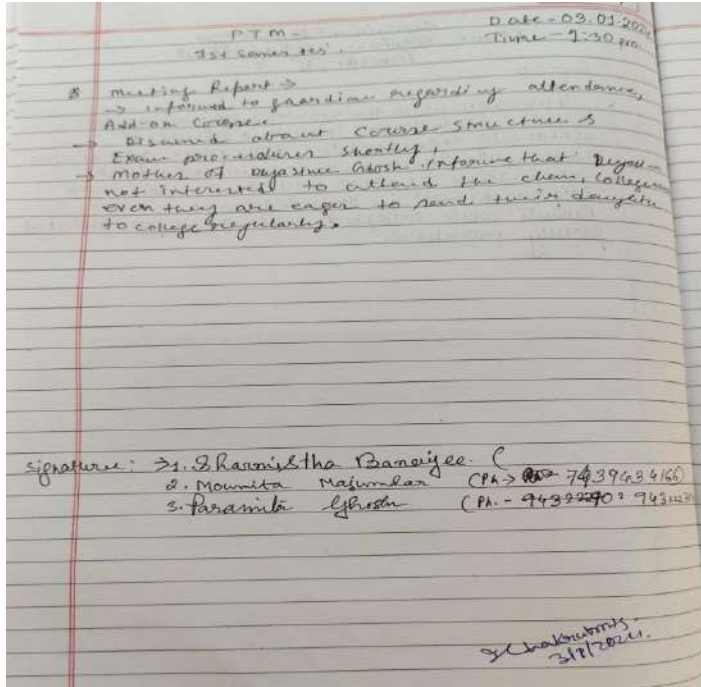 PTM -
Date - 03.01.202
1st Semester.
Time - 1:30 pm
* Meeting Report →
→ informed to guardian regarding attendance,
Add-on Course.
→ Discussed about Course structure &
Exam procedures shortly.
→ Mother of Ghosh informe that
not interested to attend the class, College
even they are eager to send their daughter
to college regularly.
Signature: → 1. Sharmistha Banerjee. (
2. Moumita Majumdar (Ph → 7439434166)
3. Paramita Ghosh (Ph. -
S Chakraborty.
2024.